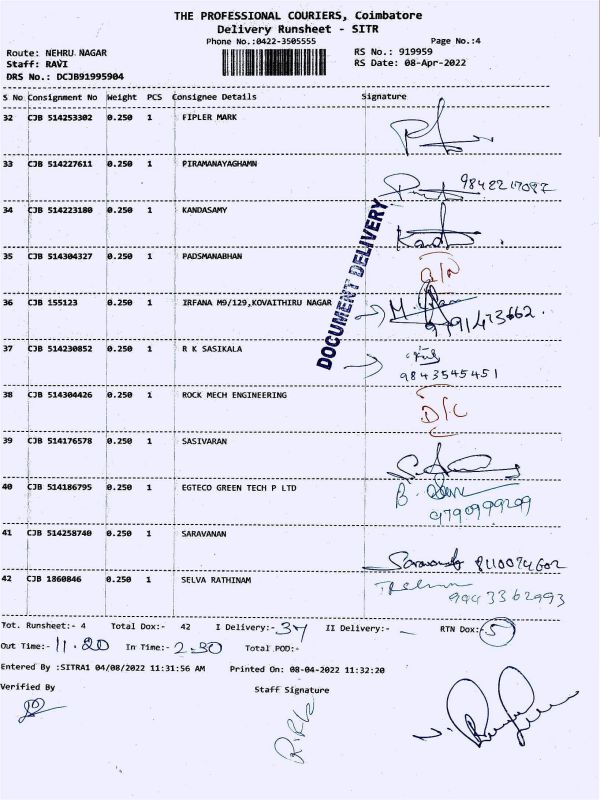 THE PROFESSIONAL COURIERS, Coimbatore
Delivery Runsheet - SITR
Phone No.:0422-3505555 Page No.:4
Route: NEHRU NAGAR RS No.: 919959
Staff: RAVI RS Date: 08-Apr-2022
DRS No.: DCJB91995904
S No Consignment No Weight PCS Consignee Details Signature
32 CJB 514253302 0.250 1 FIPLER MARK
33 CJB 514227611 0.250 1 PIRAMANAYAGHAMN
9842217097
34 CJB 514223180 0.250 1 KANDASAMY
35 CJB 514304327 0.250 1 PADSMANABHAN
DOCUMENT DELIVERY
36 CJB 155123 0.250 1 IRFANA M9/129,KOVAITHIRU NAGAR
9791473662.
37 CJB 514230852 0.250 1 R K SASIKALA
9843545451
38 CJB 514304426 0.250 1 ROCK MECH ENGINEERING
D/C
39 CJB 514176578 0.250 1 SASIVARAN
40 CJB 514186795 0.250 1 EGTECO GREEN TECH P LTD
9790999299
41 CJB 514258740 0.250 1 SARAVANAN
8110074602
42 CJB 1860846 0.250 1 SELVA RATHINAM
9943362993
Tot. Runsheet:- 4 Total Dox:- 42 I Delivery:- 37 II Delivery:- - RTN Dox:- 5
Out Time:- 11.20 In Time:- 2.30 Total POD:-
Entered By :SITRA1 04/08/2022 11:31:56 AM Printed On: 08-04-2022 11:32:20
Verified By Staff Signature